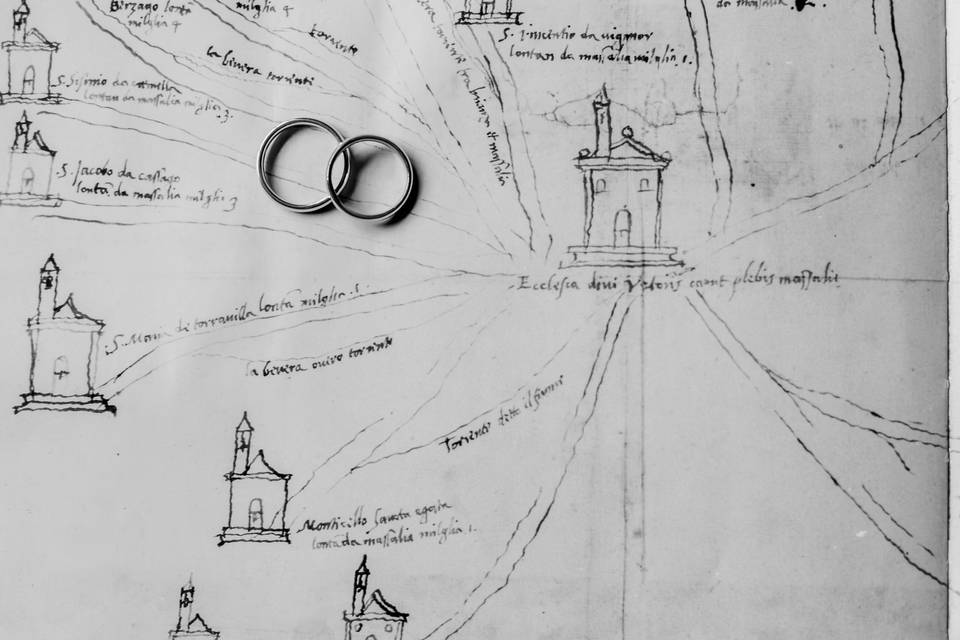 Berzago lontā
milglia 4
milglia 4
torrente
la bevera torrente
da massalia
S. Vincentio da vigmor
lontan da massalia milglia .1.
S. Sisinio da
lontan da massalia milglia .3.
S. Jacobo da cassago
lontā da massalia milglia 3
Ecclesia divi Vetoris caput plebis massalie
S. Maria de torravilla lontā milglia .5.
la bevera overo torrente
Torrente detto il fiume
Monticello Santa agata
lontā da massalia milglia .1.